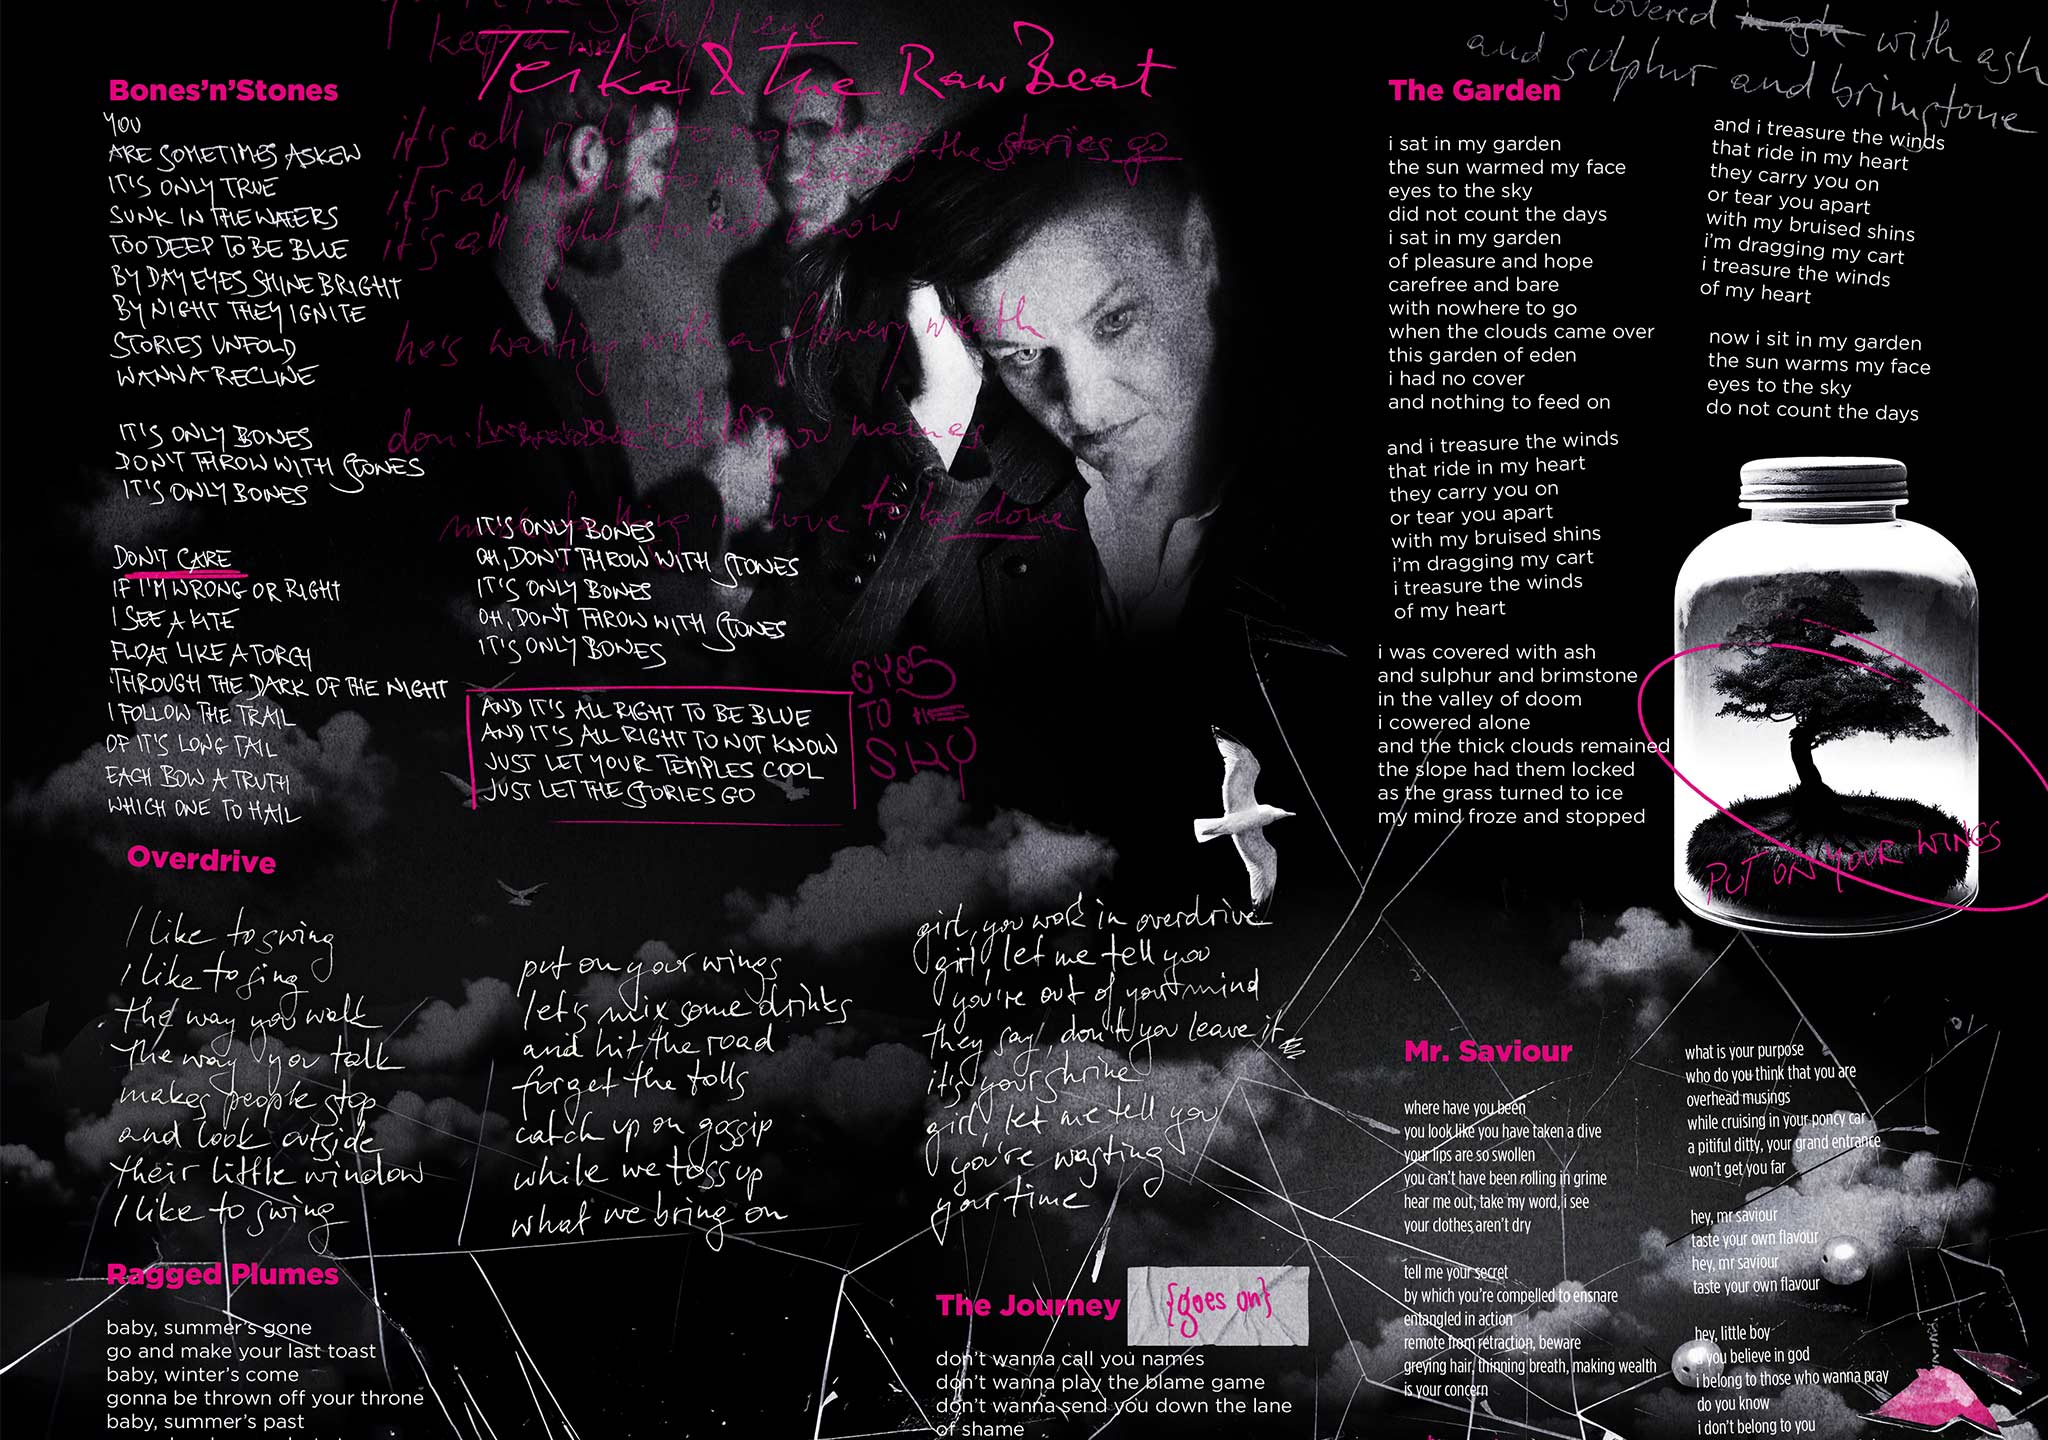 keep a watchful eye
Terka & the Raw Beat
it's all right to not know
the stories go
it's all right to not know
it's all right to not know
he's waiting with a flowery wreath
names
in love to be done
Bones'n'Stones
YOU
ARE SOMETIMES ASKEW
IT'S ONLY TRUE
SUNK IN THE WATERS
TOO DEEP TO BE BLUE
BY DAY EYES SHINE BRIGHT
BY NIGHT THEY IGNITE
STORIES UNFOLD
WANNA RECLINE
IT'S ONLY BONES
DON'T THROW WITH STONES
IT'S ONLY BONES
DON'T CARE
IF I'M WRONG OR RIGHT
I SEE A KITE
FLOAT LIKE A TORCH
THROUGH THE DARK OF THE NIGHT
I FOLLOW THE TRAIL
OF IT'S LONG TAIL
EACH BOW A TRUTH
WHICH ONE TO HAIL
IT'S ONLY BONES
OH, DON'T THROW WITH STONES
IT'S ONLY BONES
OH, DON'T THROW WITH STONES
IT'S ONLY BONES
AND IT'S ALL RIGHT TO BE BLUE
AND IT'S ALL RIGHT TO NOT KNOW
JUST LET YOUR TEMPLES COOL
JUST LET THE STORIES GO
EYES
TO THE
SKY
Overdrive
I like to swing
I like to sing
the way you walk
the way you talk
makes people stop
and look outside
their little window
I like to swing
put on your wings
let's mix some drinks
and hit the road
forget the tolls
catch up on gossip
while we toss up
what we bring on
girl, you work in overdrive
girl, let me tell you
you're out of your mind
they say, don't you leave it
it's your shrine
girl, let me tell you
you're wasting
your time
Ragged Plumes
baby, summer's gone
go and make your last toast
baby, winter's come
gonna be thrown off your throne
baby, summer's past
The Journey {goes on}
don't wanna call you names
don't wanna play the blame game
don't wanna send you down the lane
of shame
covered in ash with ash
and sulphur and brimstone
The Garden
i sat in my garden
the sun warmed my face
eyes to the sky
did not count the days
i sat in my garden
of pleasure and hope
carefree and bare
with nowhere to go
when the clouds came over
this garden of eden
i had no cover
and nothing to feed on
and i treasure the winds
that ride in my heart
they carry you on
or tear you apart
with my bruised shins
i'm dragging my cart
i treasure the winds
of my heart
i was covered with ash
and sulphur and brimstone
in the valley of doom
i cowered alone
and the thick clouds remained
the slope had them locked
as the grass turned to ice
my mind froze and stopped
and i treasure the winds
that ride in my heart
they carry you on
or tear you apart
with my bruised shins
i'm dragging my cart
i treasure the winds
of my heart
now i sit in my garden
the sun warms my face
eyes to the sky
do not count the days
PUT ON YOUR WINGS
Mr. Saviour
where have you been
you look like you have taken a dive
your lips are so swollen
you can't have been rolling in grime
hear me out, take my word, i see
your clothes aren't dry
tell me your secret
by which you're compelled to ensnare
entangled in action
remote from retraction, beware
greying hair, thinning breath, making wealth
is your concern
what is your purpose
who do you think that you are
overhead musings
while cruising in your poncy car
a pitiful ditty, your grand entrance
won't get you far
hey, mr saviour
taste your own flavour
hey, mr saviour
taste your own flavour
hey, little boy
you believe in god
i belong to those who wanna pray
do you know
i don't belong to you